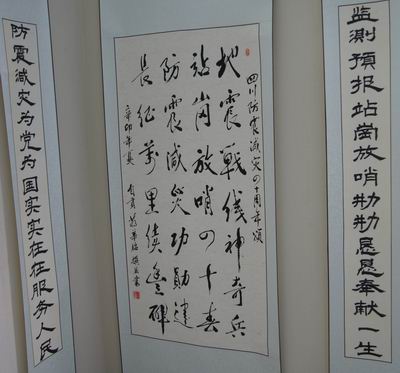 监测預报站崗放哨勤勤恳恳奉献一生
四川防震减灾四十周年颂
地震戰线神奇兵
站崗放哨四十春
防震减灾功勋建
長征萬里续豐碑
辛卯年夏
自贡
防震减灾为党为国实实在在服务人民